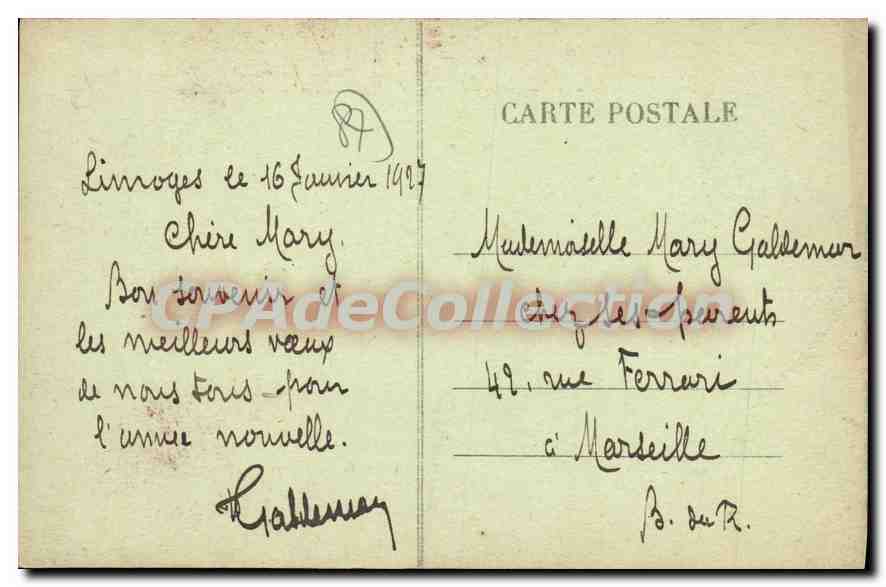 87
Limoges le 16 Janvier 1927
Chère Mary.
Bon souvenir et
les meilleurs vœux
de nous tous pour
l'année nouvelle.
Galdemar
CPAdeCollection
CARTE POSTALE
Mademoiselle Mary Galdemar
chez ses parents
42, rue Ferrari
à Marseille
B. du R.